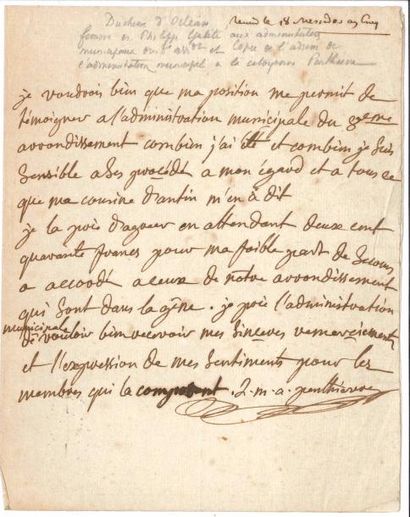 Duchesse d'Orléans
remis le 18 messidor an Cinq
femme de Philippe Egalité aux administrateurs
municipaux du 8e arrdt et Copie de l'adresse de
l'administration municipal a la citoyenne Penthievre
je voudrois bien que ma position me permit de
témoigner a l'administration municipale du
arrondissement combien j'ai été et combien je suis
sensible a ses procédés a mon égard et a tous ce
que ma cousine d'antin m'en à dit
je la prie d'agreer en attendant deux cent
quarante francs pour ma foible part de secours
a accordé a ceux de notre arrondissement
qui sont dans la gêne. je prie l'administration
municipale
de vouloir bien recevoir mes sincères remerciements
et l'expression de mes sentiments pour les
membres qui la composent. L. m. a. penthievre